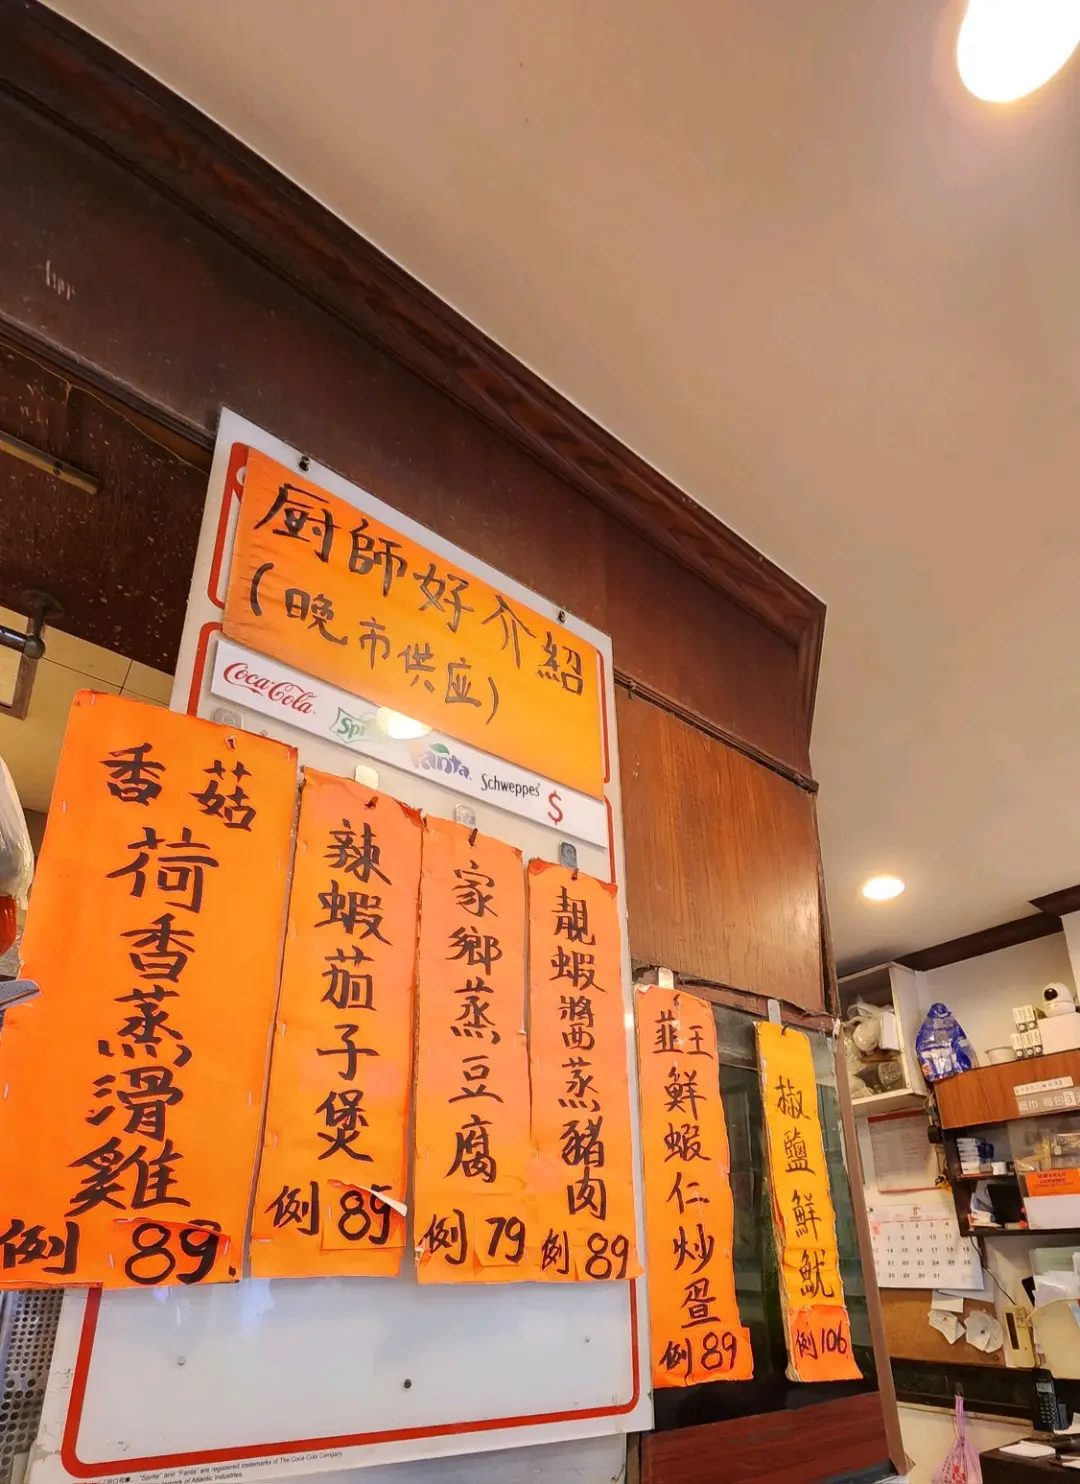 厨師好介紹
(晚市供应)
Coca-Cola
Sprite
Fanta
Schweppes
$
香菇
荷香蒸滑雞
例 89
辣蝦茄子煲
例 85
家鄉蒸豆腐
例 79
靚蝦醬蒸豬肉
例 89
韮王鮮蝦仁炒蛋
例 89
椒鹽鮮魷
例 106
"Sprite" and "Fanta" are registered trademarks of The Coca-Cola Company